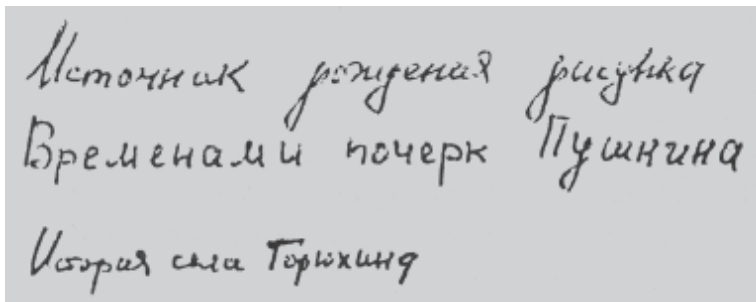 Источник рождения рисунка
Временами почерк Пушкина
История села Горюхина